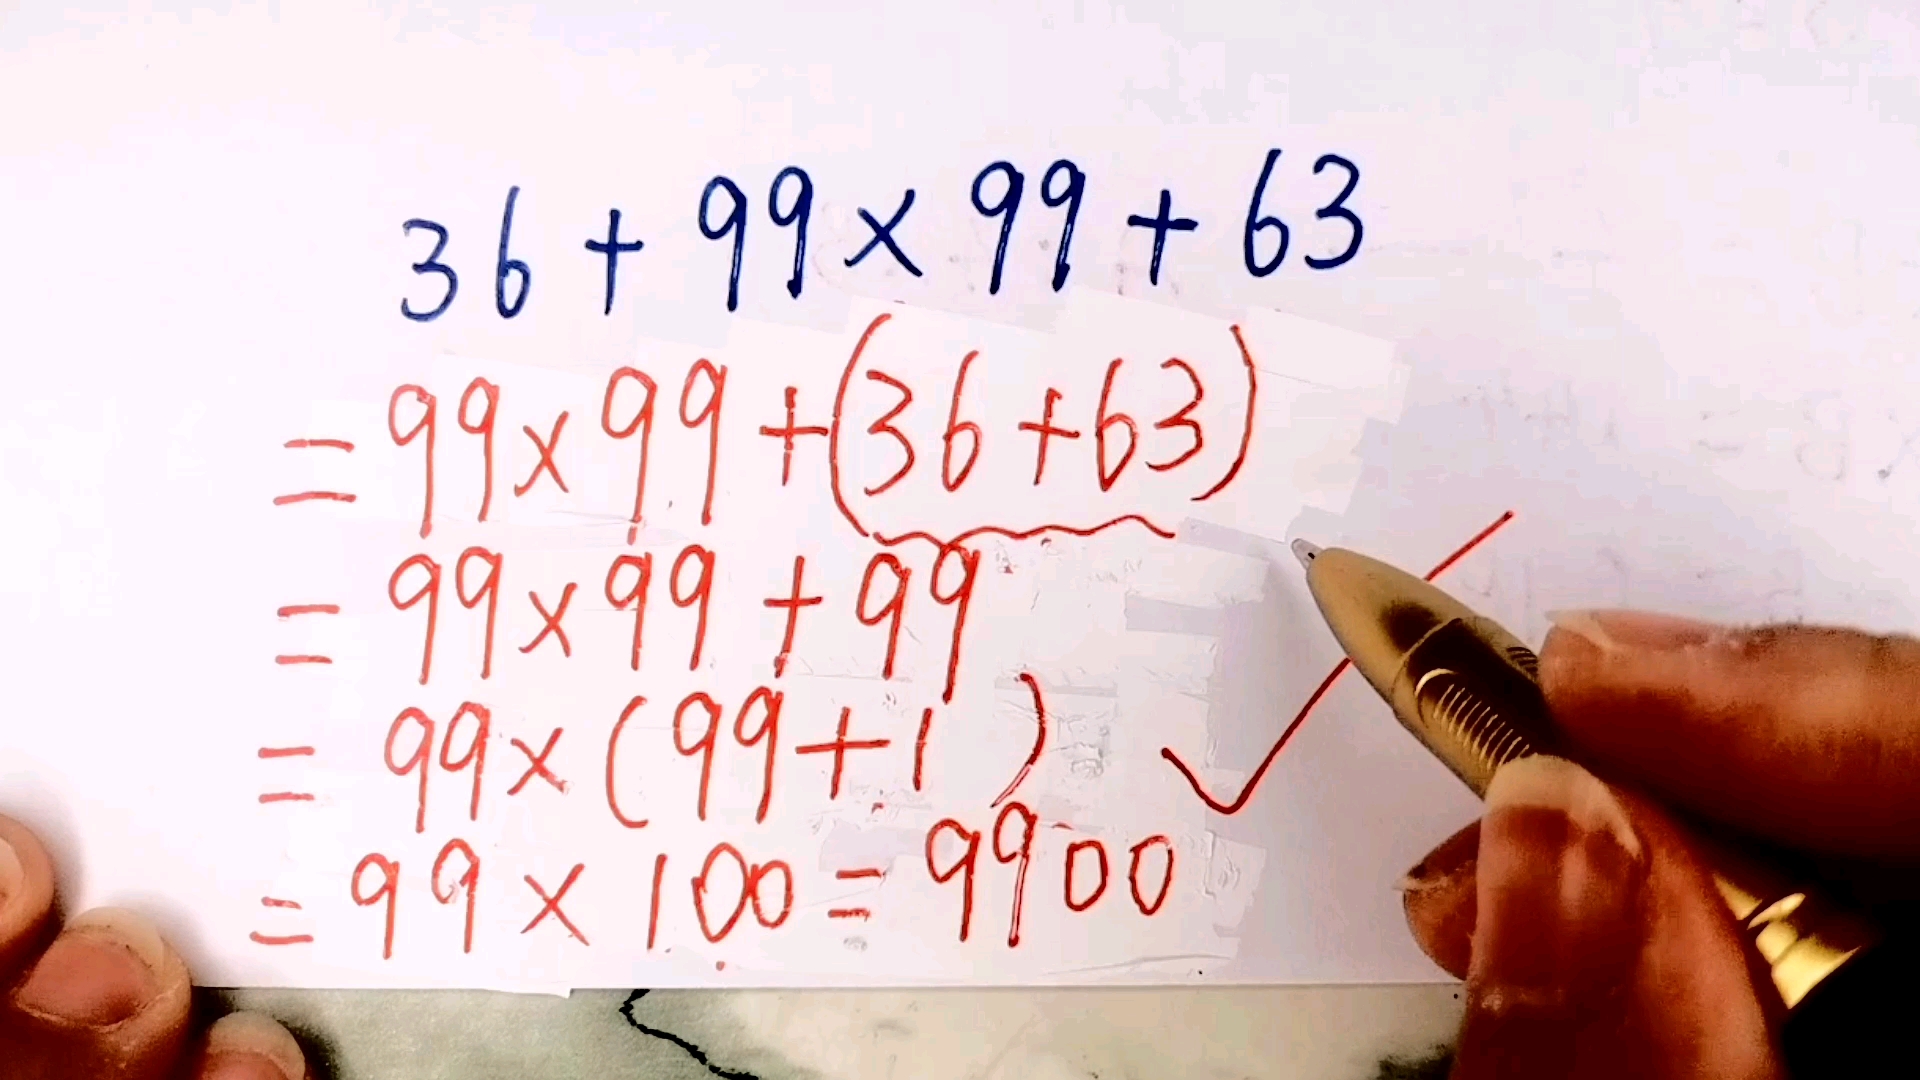 36 + 99 × 99 + 63
= 99 × 99 + (36 + 63)
= 99 × 99 + 99
= 99 × (99 + 1)
= 99 × 100 = 9900